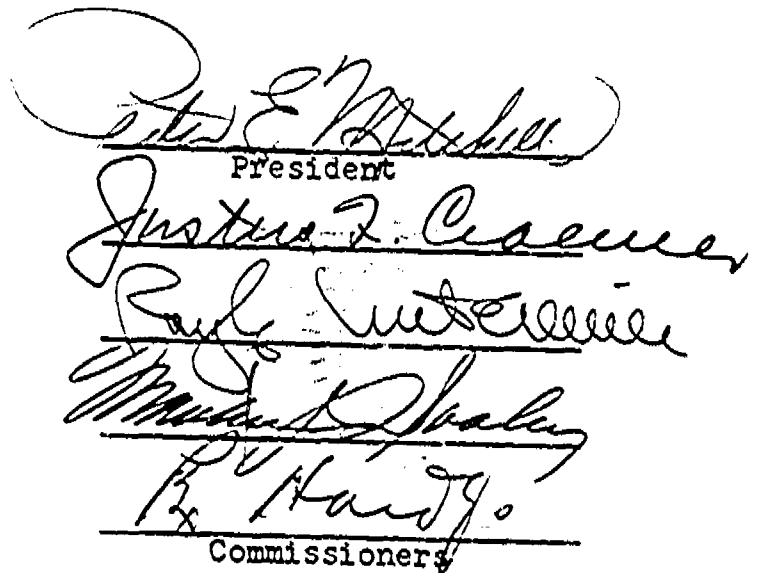 Peter E. Mitchell
President
Justus F. Craemer
Ray L. Untereiner
Matthew J. Dooley
Rex Hardy
Commissioners